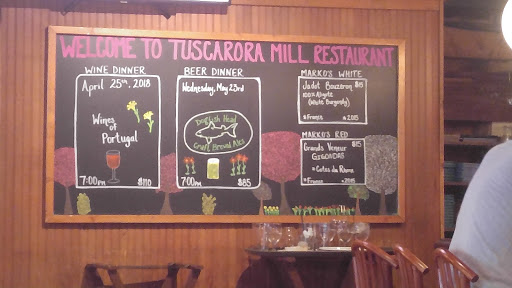 WELCOME TO TUSCARORA MILL RESTAURANT
WINE DINNER
April 25th, 2018
Wines
of
Portugal
7:00pm $110
BEER DINNER
Wednesday, May 23rd
Dogfish Head
Craft Brewed Ales
7:00pm $85
MARKO'S WHITE
Jadot Bouzeron $15
100% Aligote
(White Burgundy)
*France *2015
MARKO'S RED
Grands Veneur $15
GIGONDAS
*Cotes du Rhone
*France *2015